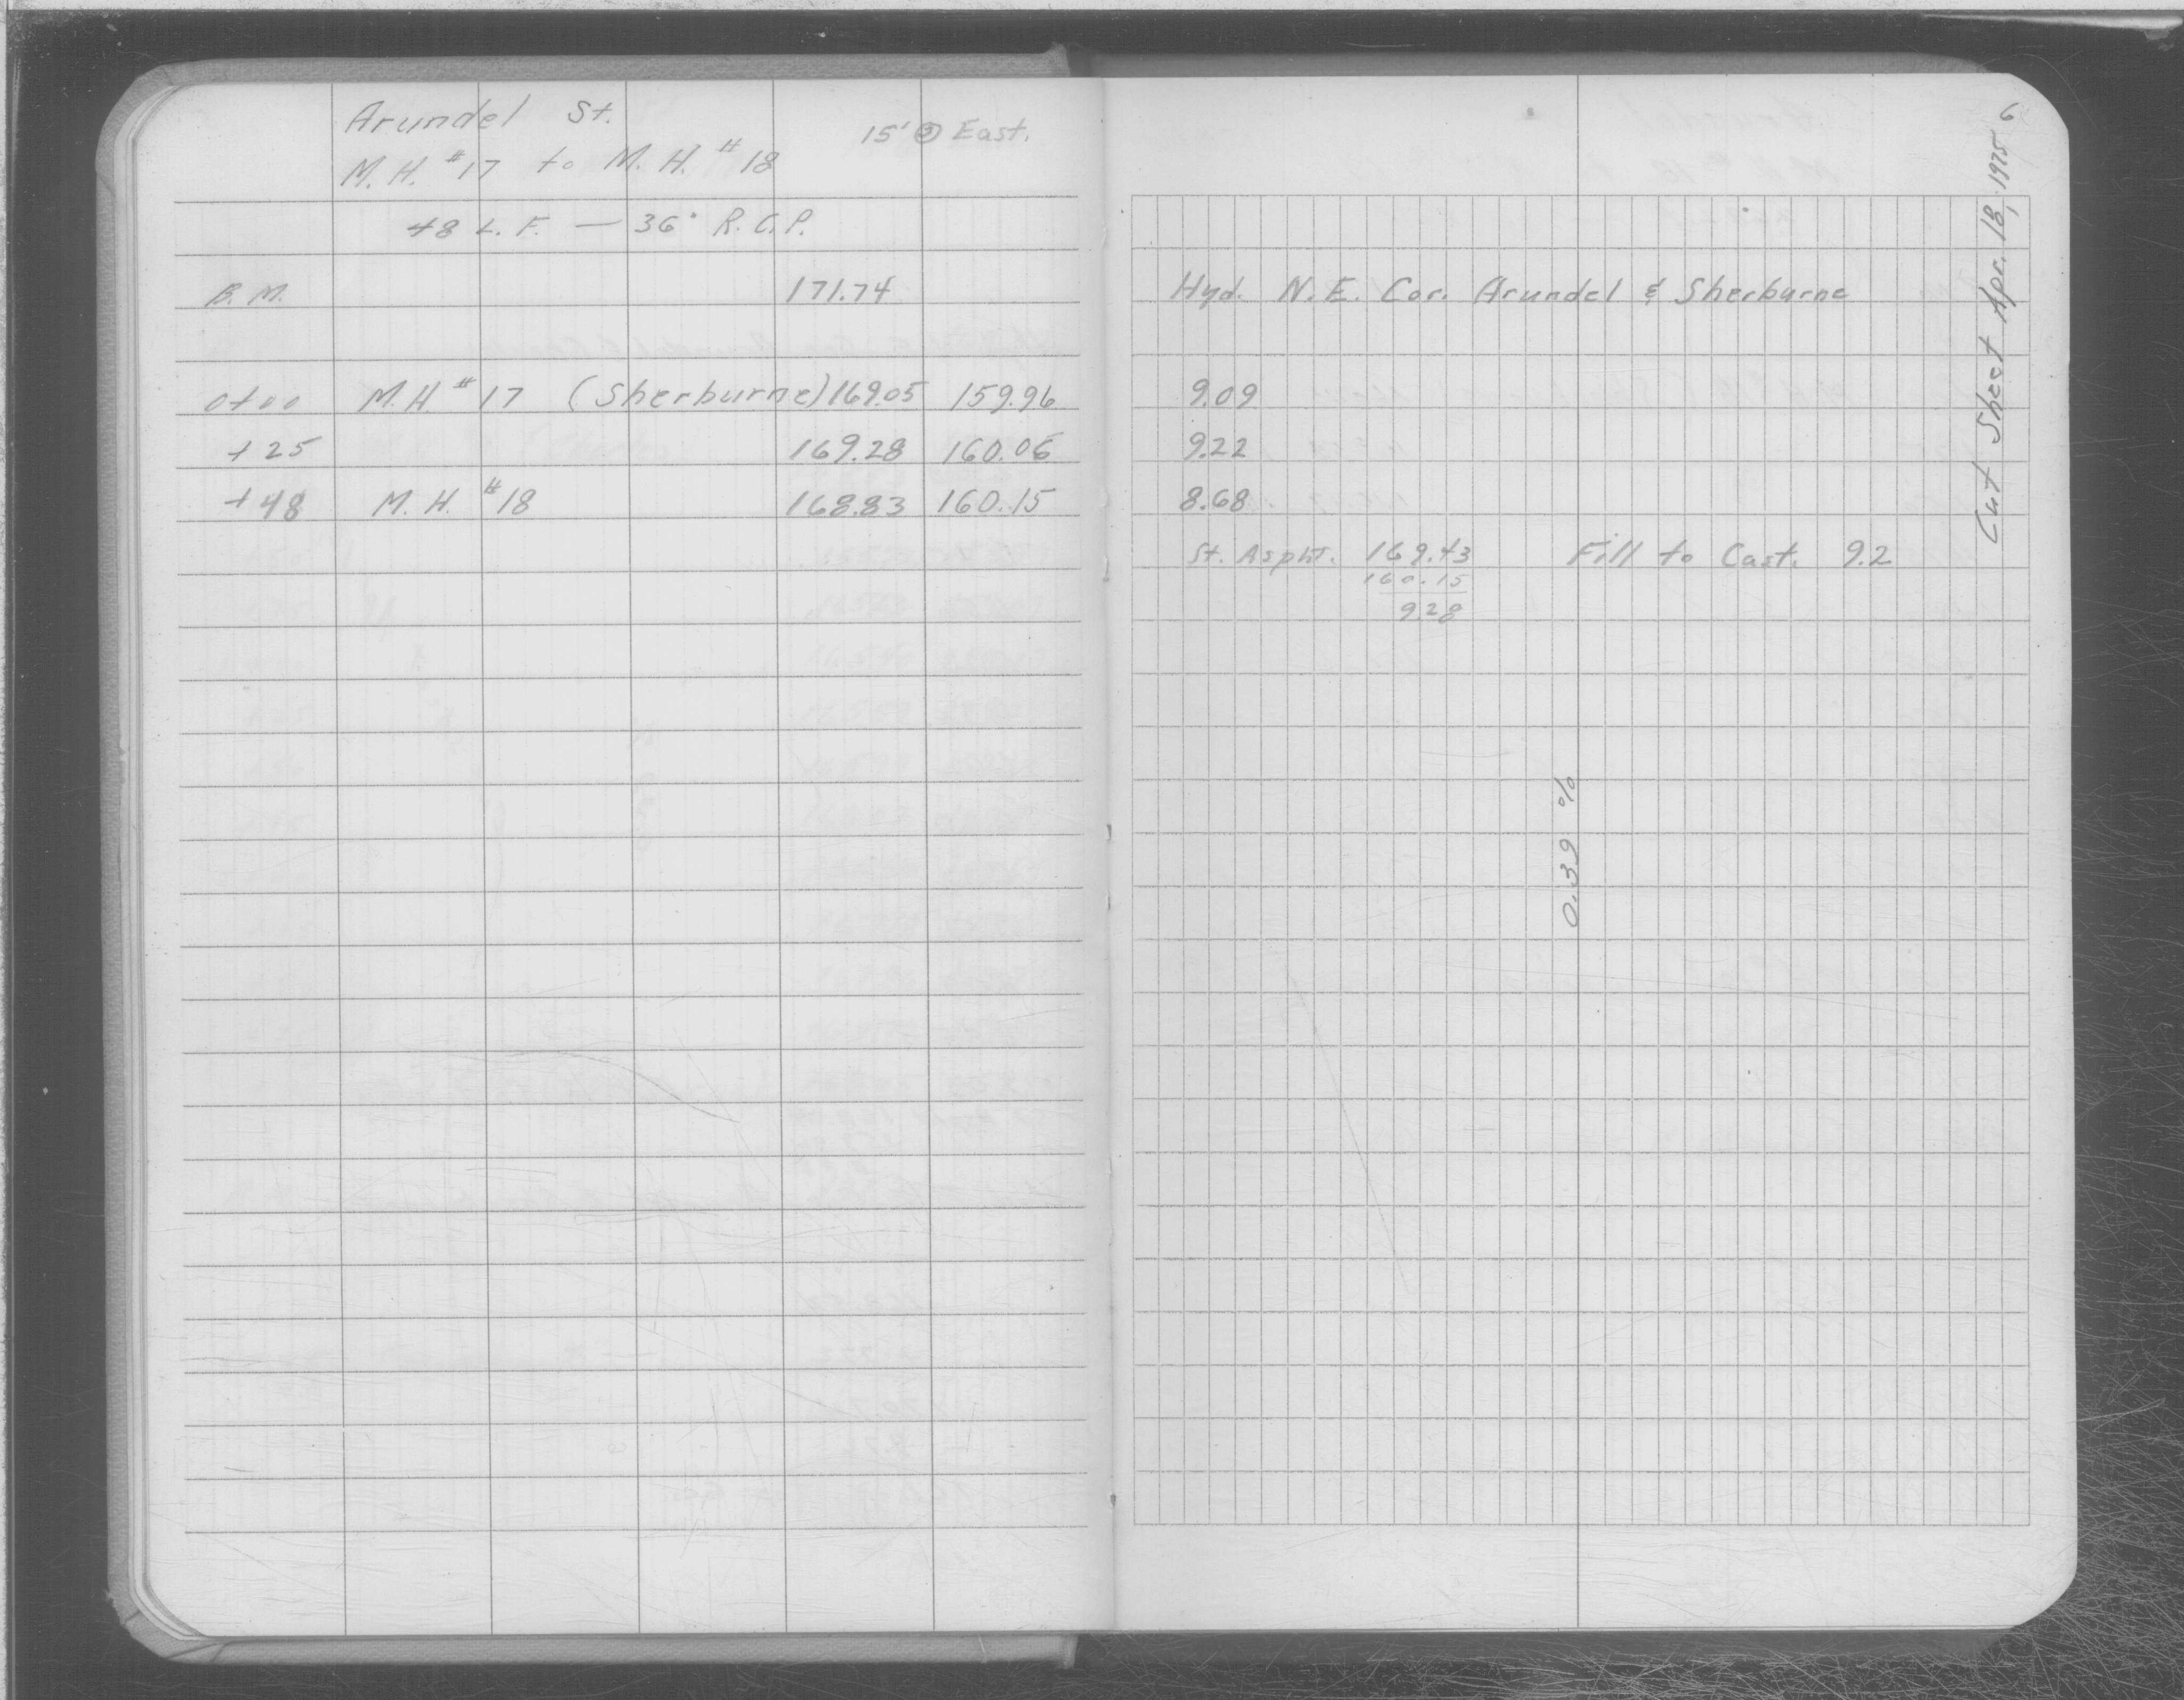 Arundel St.
15' @ East.
M.H. #17 to M.H. #18
48 L.F. — 36" R.C.P.
B.M. 171.74
0+00 M.H #17 (Sherburne) 169.05 159.96
+25 169.28 160.06
+48 M.H. #18 168.83 160.15
6
Cut Sheet Apr. 18, 1975
Hyd. N.E. Cor. Arundel & Sherburne
9.09
9.22
8.68
St. Aspht. 169.43 Fill to Cast. 9.2
160.15
9.28
0.39 %